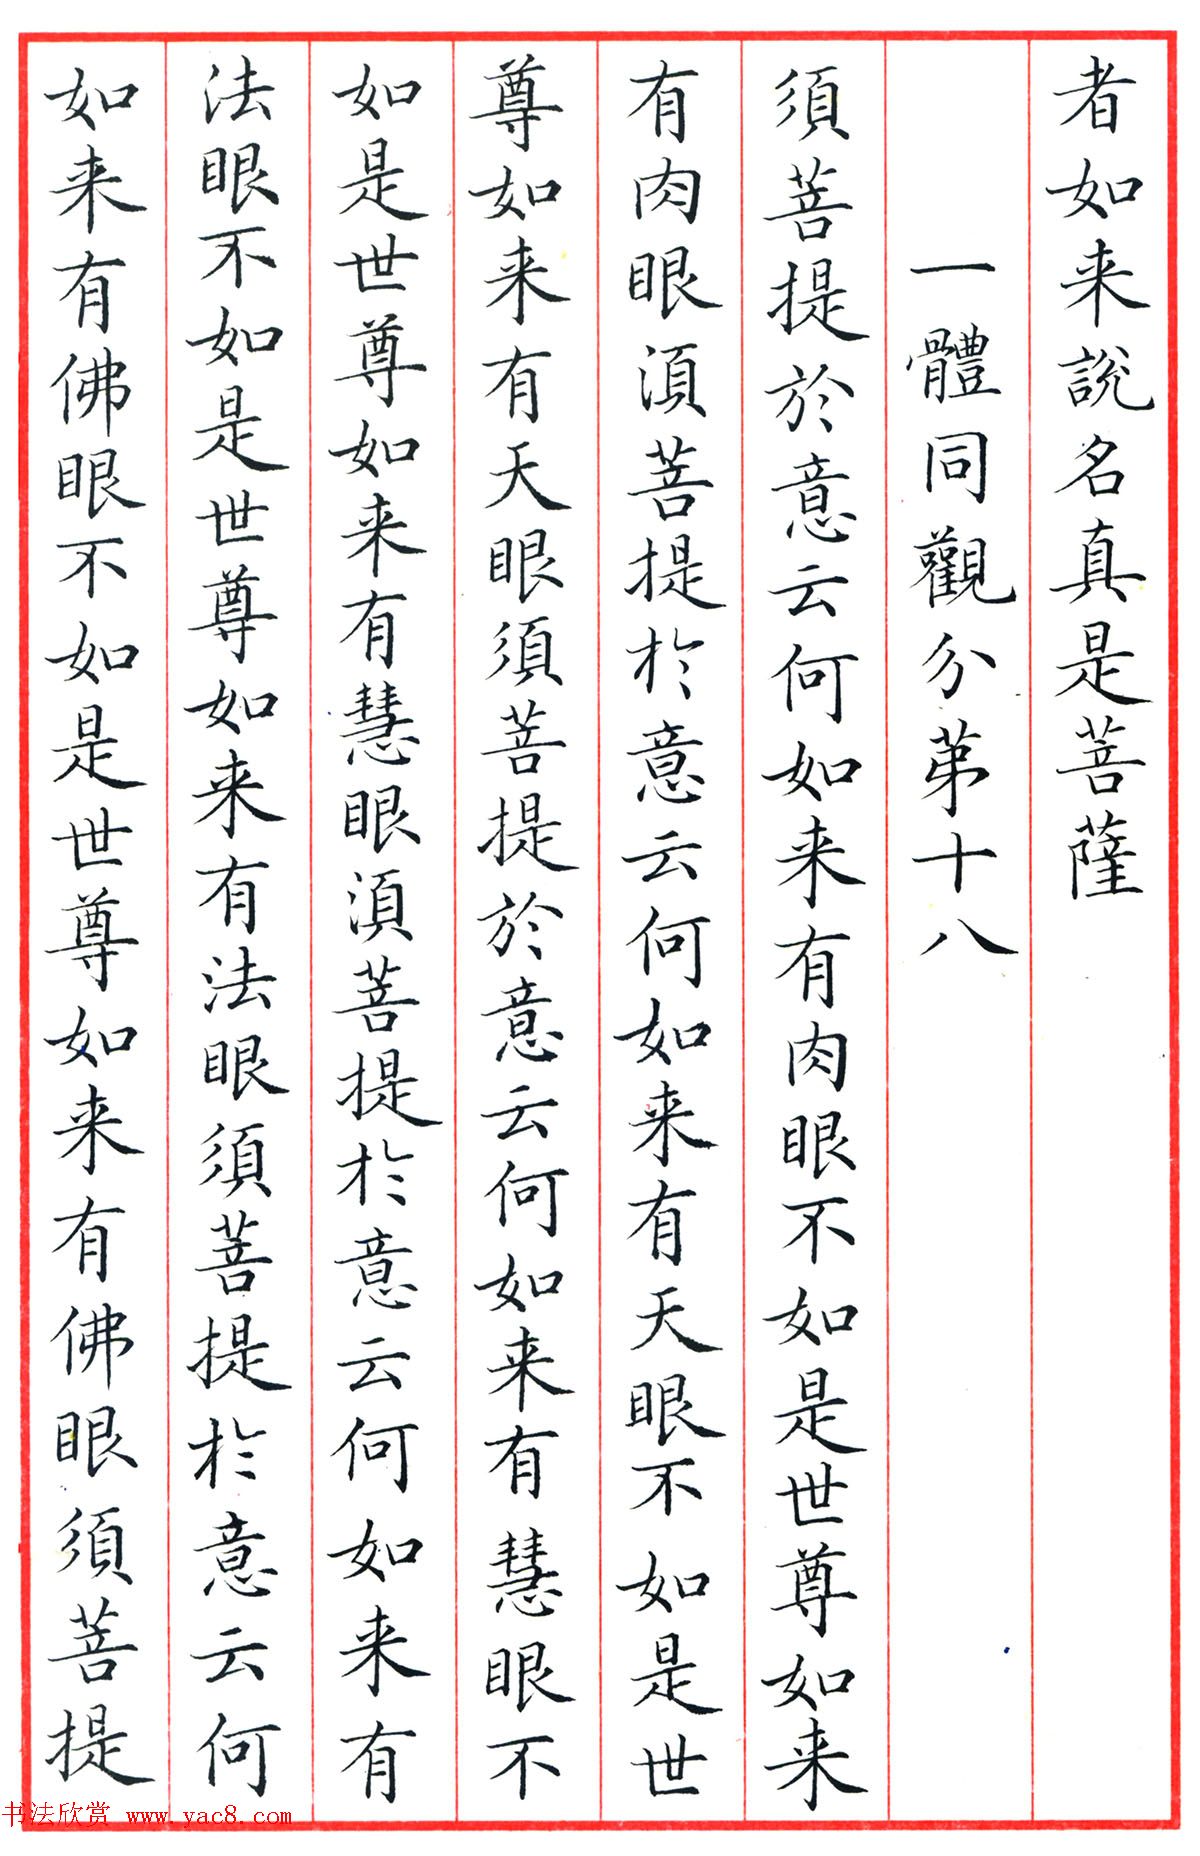 者如来説名真是菩薩
一體同觀分第十八
須菩提於意云何如来有肉眼不如是世尊如来
有肉眼湏菩提扵意云何如来有天眼不如是世
尊如来有天眼須菩提於意云何如来有慧眼不
如是世尊如来有慧眼湏菩提扵意云何如来有
法眼不如是世尊如来有法眼須菩提扵意云何
如来有佛眼不如是世尊如来有佛眼須菩提
书法欣赏 www.yac8.com